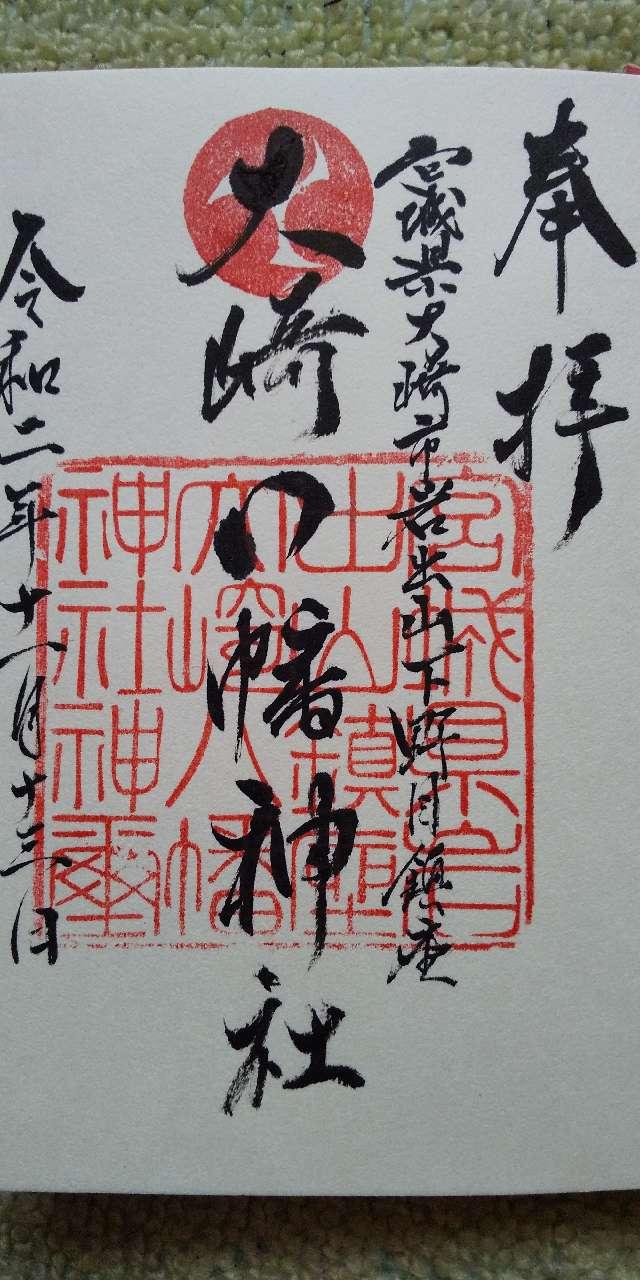 奉拝
宮城県大崎市岩出山下野目鎮座
大崎八幡神社
令和二年十一月十三日
宮城県岩
出山鎮座
大崎八幡
神社神璽